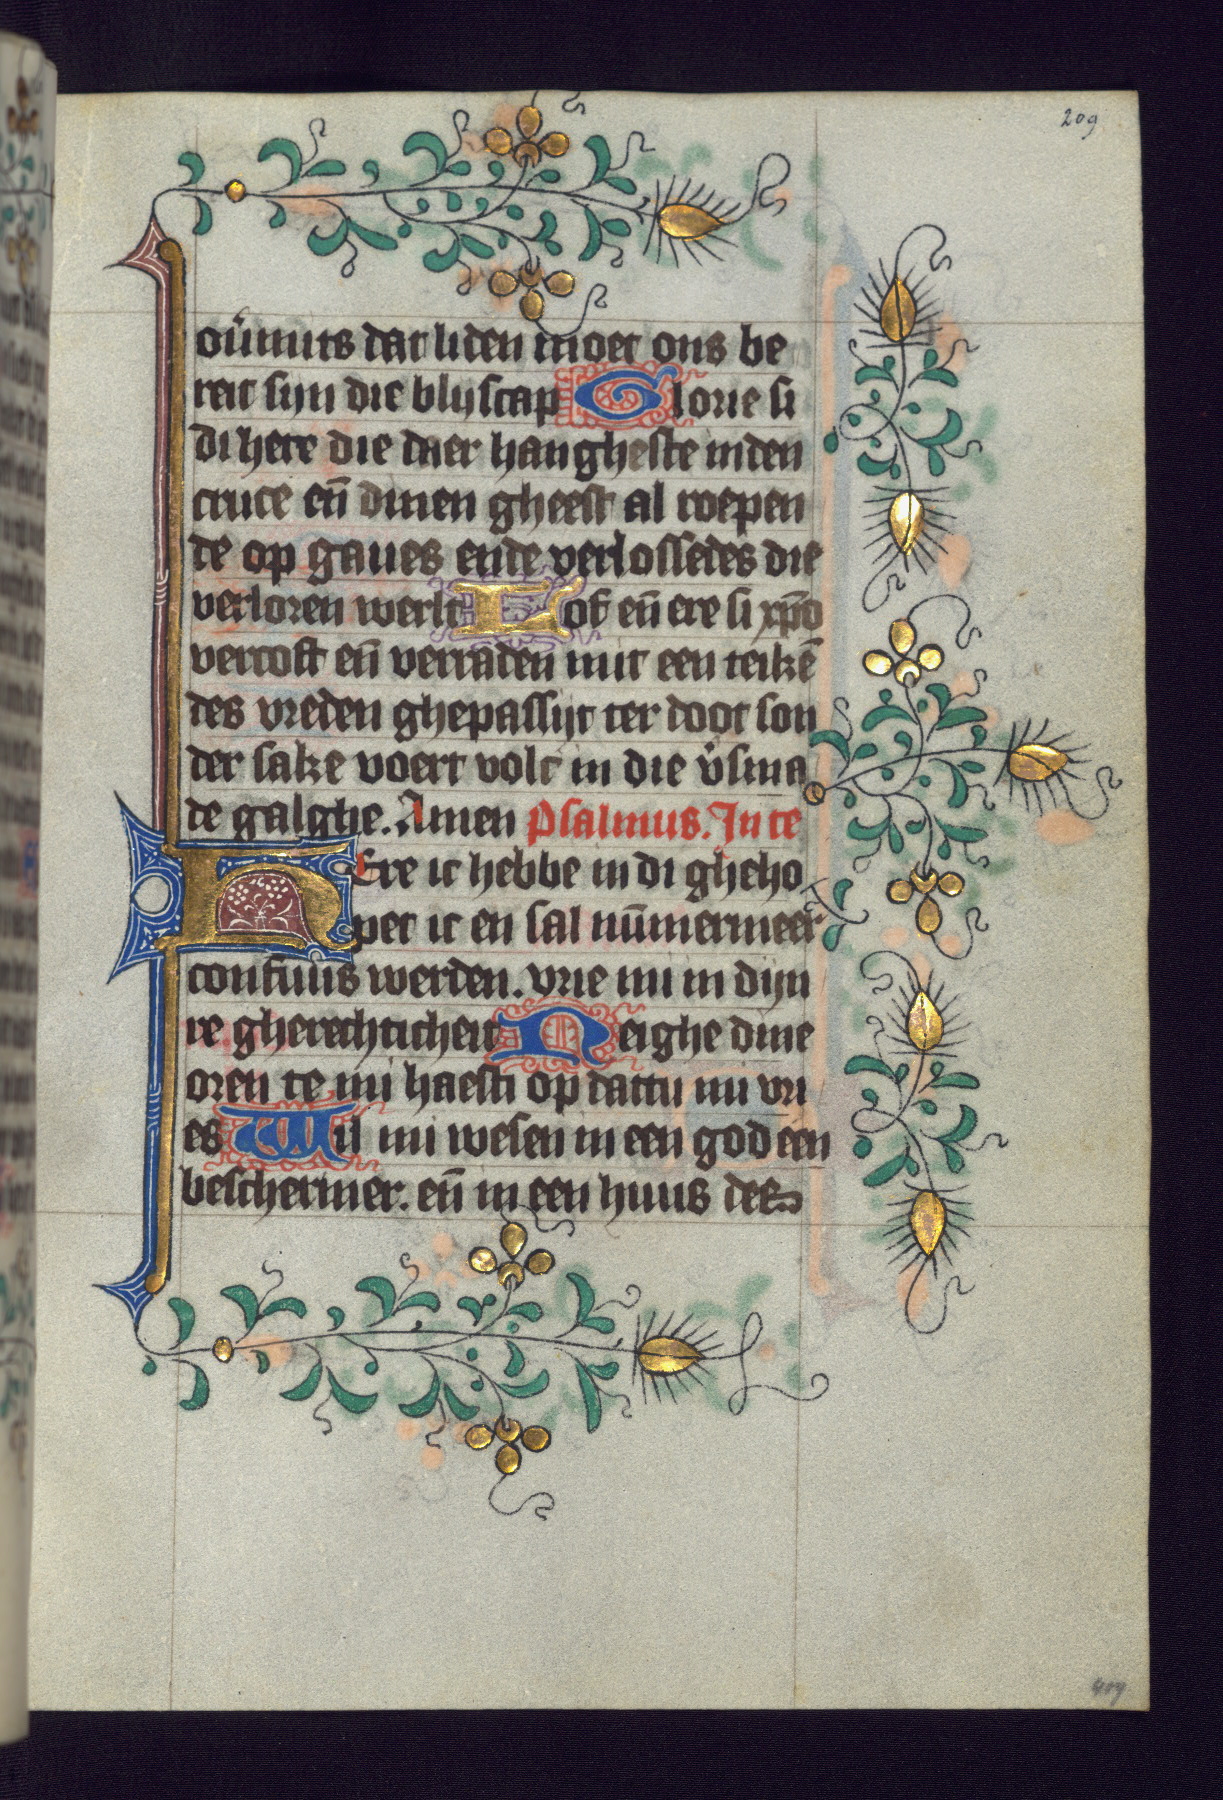 209
ouͤmits dat liden moet ons be
reit sijn die blijscap Glorie si
di here die daer hangheste inden
cruce en̄ dinen gheest al roepen
de op gaues ende verlossedes die
verloren werlt Lof en̄ ere si xp̄o
vercoft en̄ verraden mit een teikē
des vreden ghepassijt ter doot son
der sake voert volc in die v̓sma
de galghe. Amen Psalmus. In te
HEre ic hebbe in di gheho
pet ic en sal nūmermeer
confuus werden. vrie mi in dijn
re gherechticheit Neighe dine
oren te mi haesti op dattu mi vri
es Wil mi wesen in een god een
beschermer. en̄ in een huus des
409